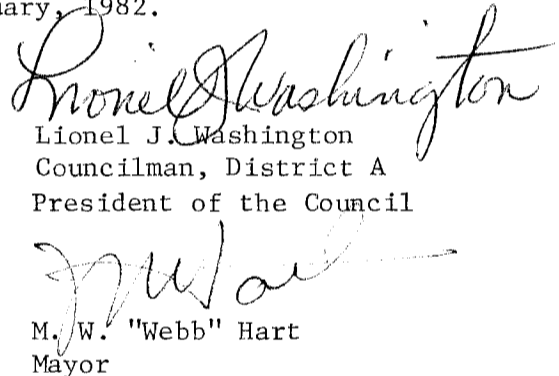 uary, 1982.
Lionel J Washington
Lionel J. Washington
Councilman, District A
President of the Council
M. W. "Webb" Hart
Mayor